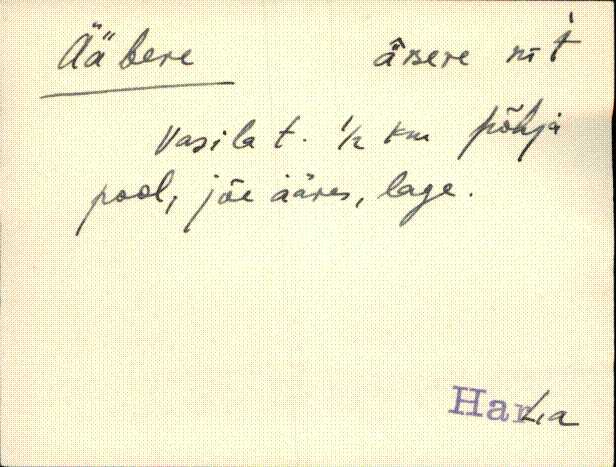 Ääbere ä̂ʙere nit́
Vasila t. ½ km põhja
pool, jõe ääres, lage.
HarLa